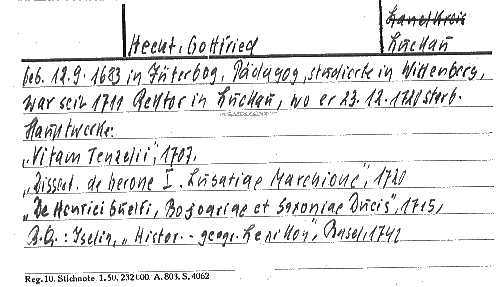 Hecht, Gottfried
Land/Kreis
Luckau
Geb. 12.9.1683 in Jüterbog, Pädagog, studierte in Wittenberg,
war seit 1711 Rektor in Luckau, wo er 23.12.1720 starb.
Hauptwerke:
„Vitam Tenzelii", 1707,
„Dissert. de Gerone I. Lusatiae Marchione", 1720
„De Henrici Guelfi, Bojoariae et Saxoniae Ducis", 1715,
B.Q.: Iselin, „Histor. - geogr. Lexikon", Basel, 1742
Reg. 10. Stichnote. 1. 50. 2321.00. A. 803. S. 4062